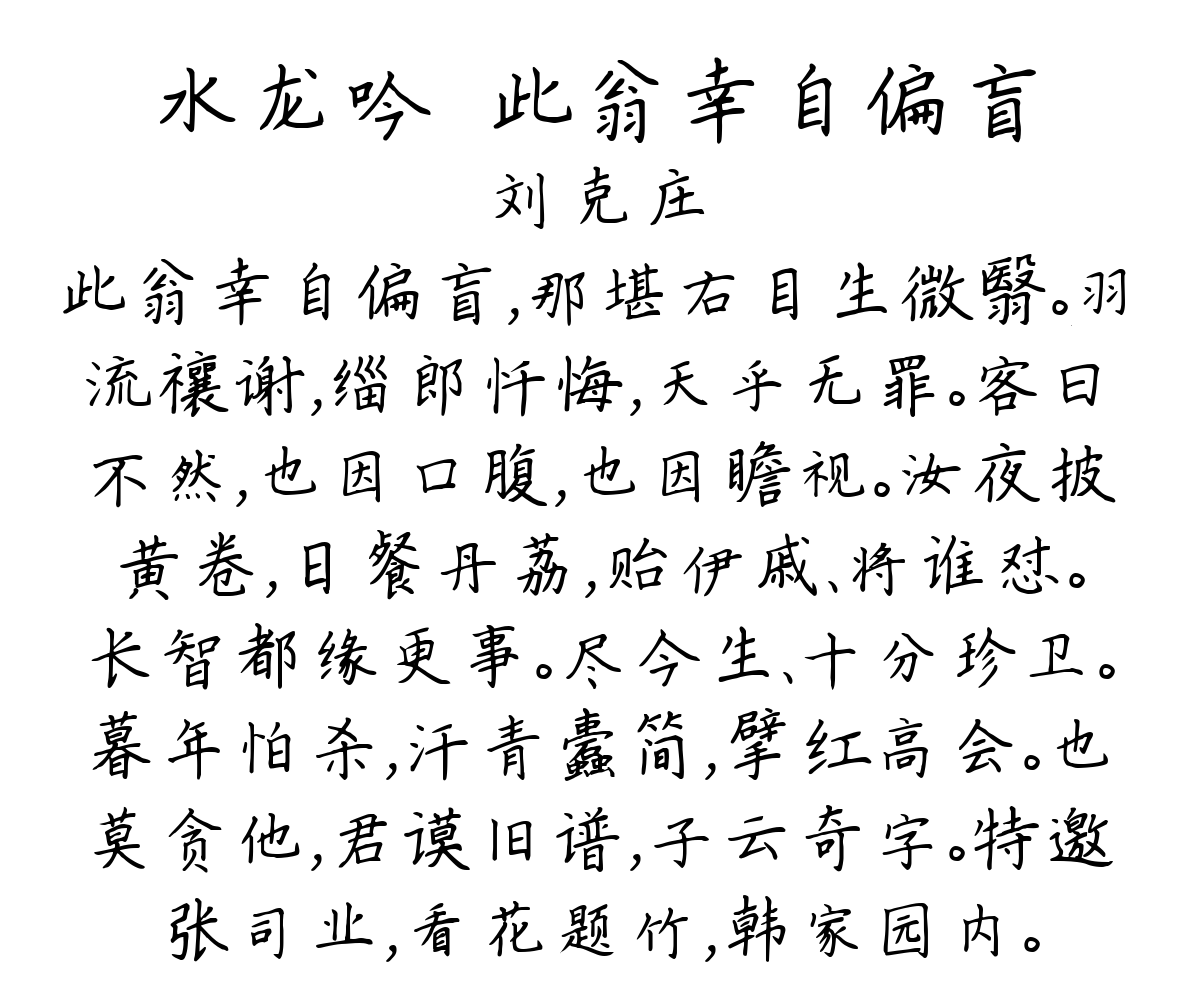 水龙吟 此翁幸自偏盲
刘克庄
此翁幸自偏盲,那堪右目生微翳。羽
流禳谢,缁郎忏悔,天乎无罪。客曰
不然,也因口腹,也因瞻视。汝夜披
黄卷,日餐丹荔,贻伊戚、将谁怼。
长智都缘更事。尽今生、十分珍卫。
暮年怕杀,汗青蠹简,擘红高会。也
莫贪他,君谟旧谱,子云奇字。特邀
张司业,看花题竹,韩家园内。